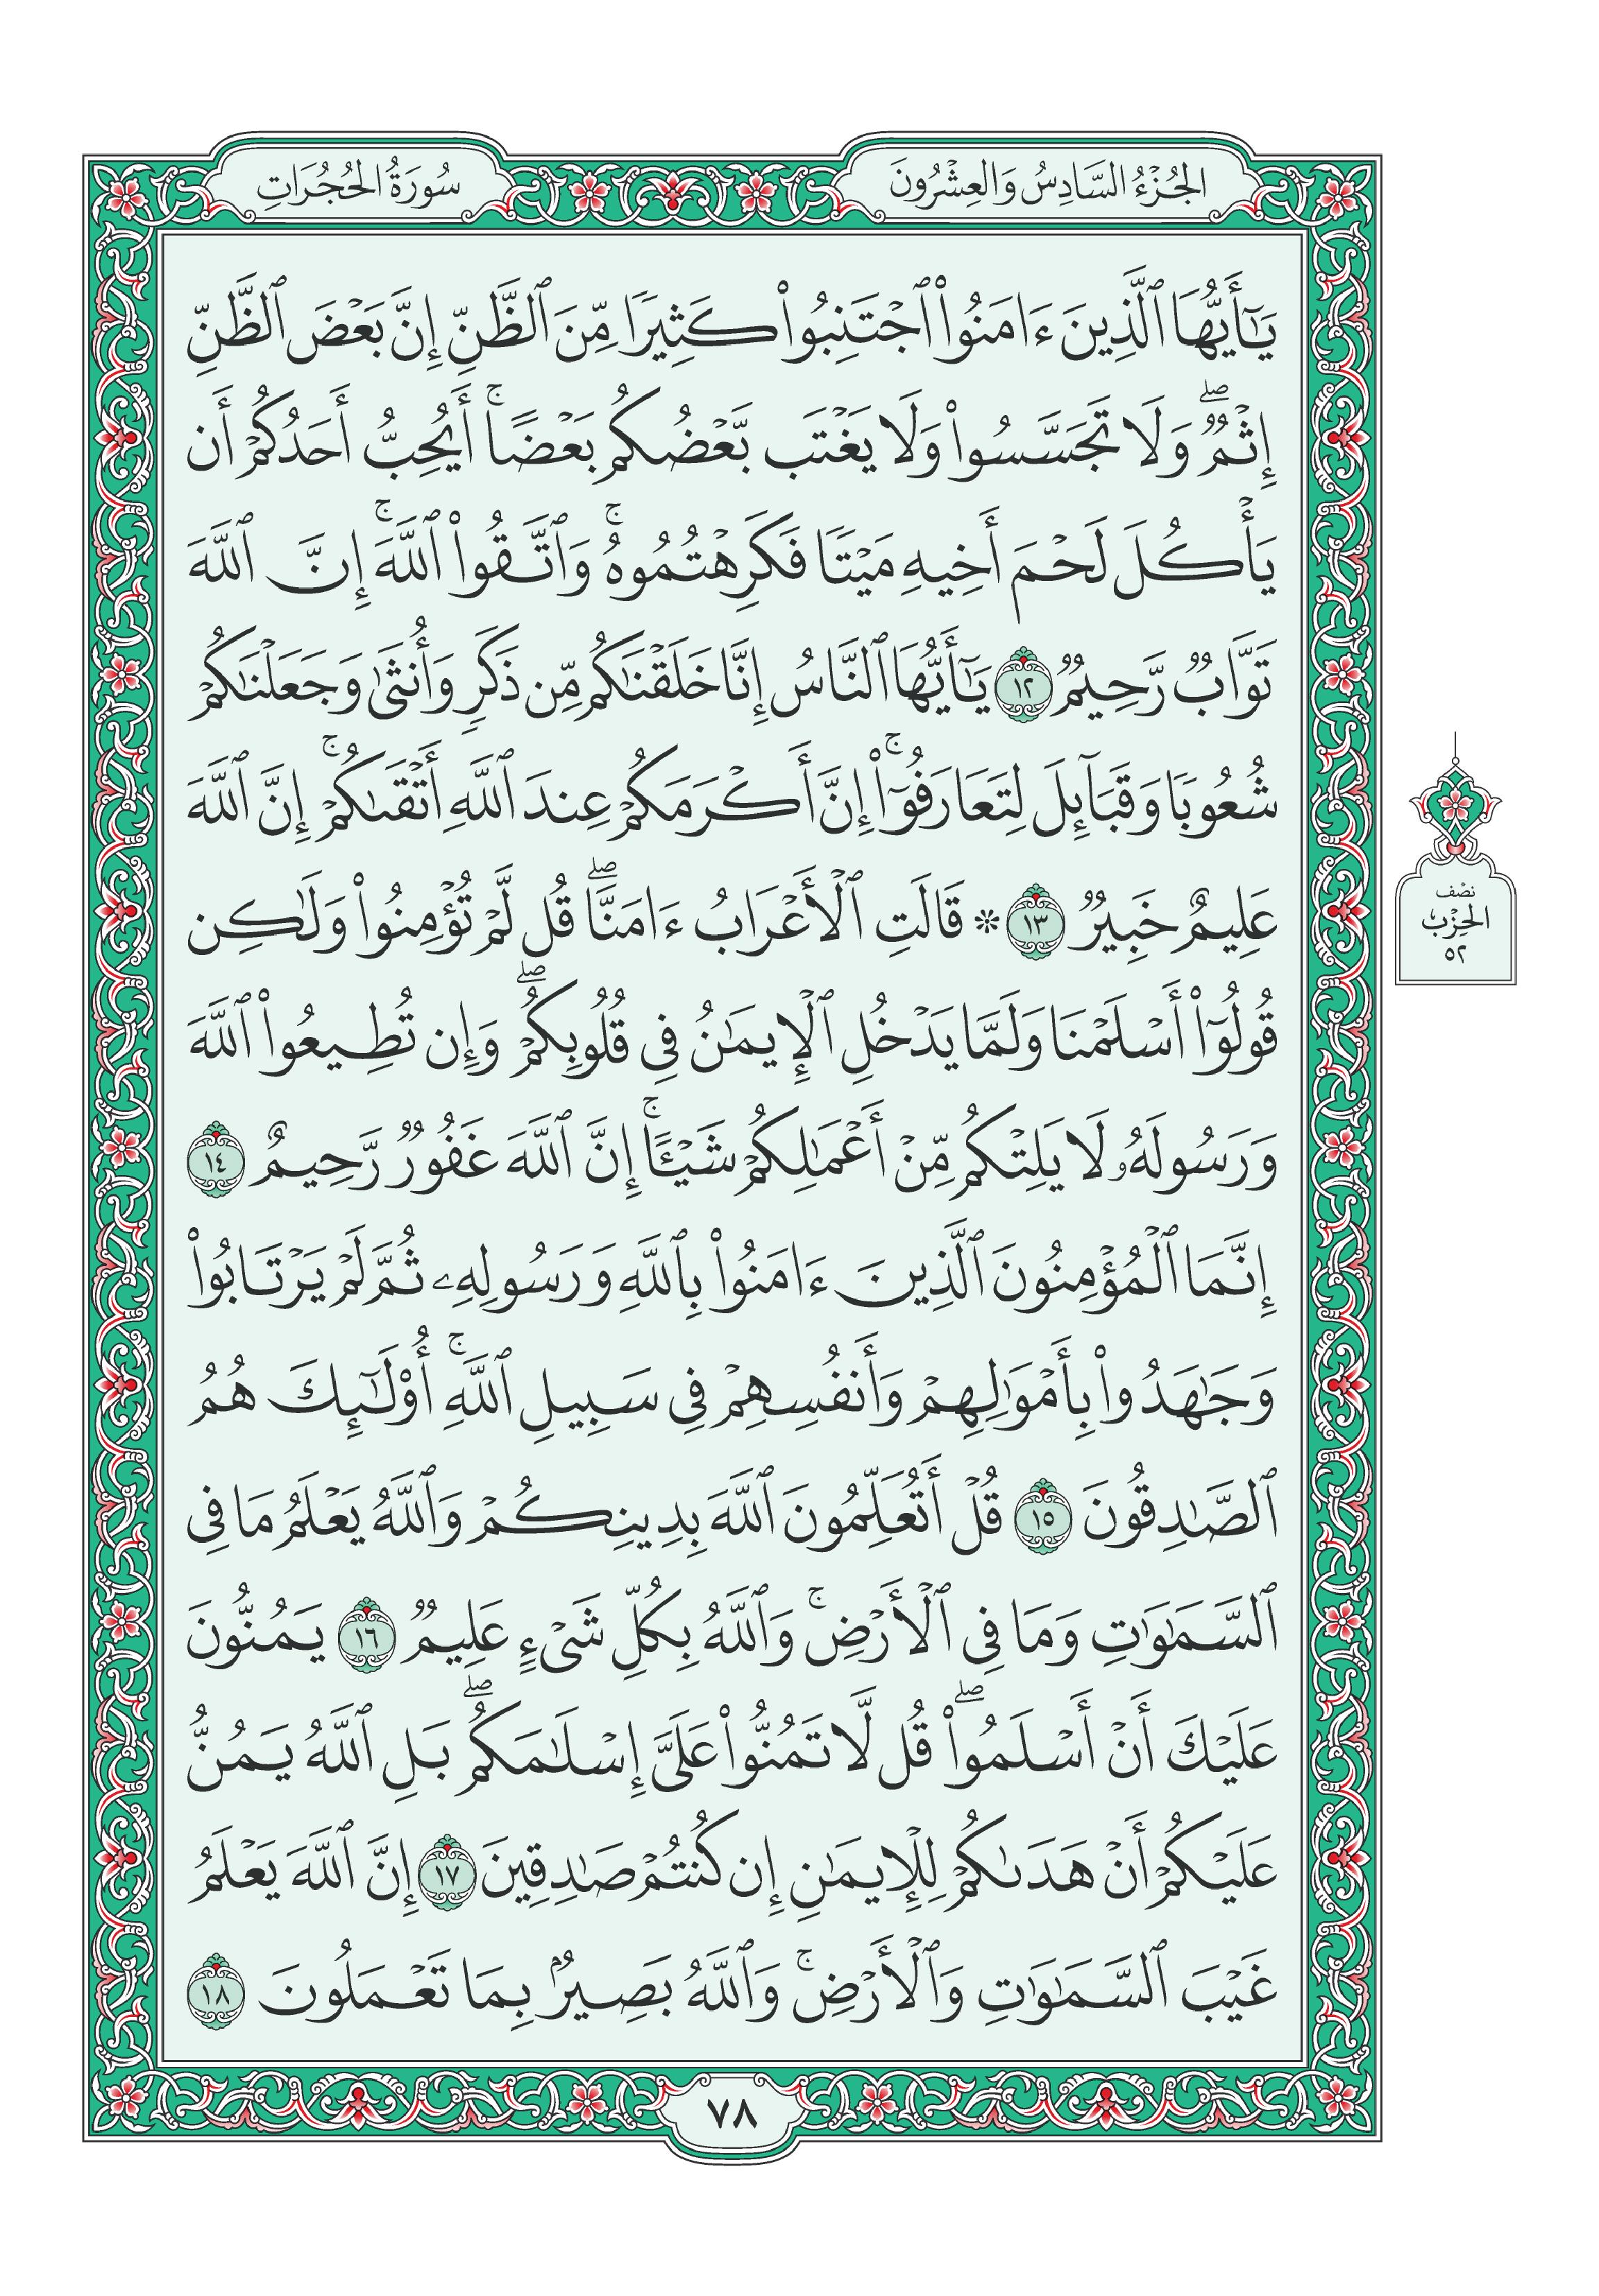 الجُزْءُ السَّادِسُ وَالعِشْرُونَ
سُورَةُ الحُجُرَاتِ
يَٰٓأَيُّهَا ٱلَّذِينَ ءَامَنُواْ ٱجْتَنِبُواْ كَثِيرًا مِّنَ ٱلظَّنِّ إِنَّ بَعْضَ ٱلظَّنِّ
إِثْمٌۖ وَلَا تَجَسَّسُواْ وَلَا يَغْتَب بَّعْضُكُم بَعْضًاۚ أَيُحِبُّ أَحَدُكُمْ أَن
يَأْكُلَ لَحْمَ أَخِيهِ مَيْتًا فَكَرِهْتُمُوهُۚ وَٱتَّقُواْ ٱللَّهَۚ إِنَّ ٱللَّهَ
تَوَّابٌ رَّحِيمٌ ١٢ يَٰٓأَيُّهَا ٱلنَّاسُ إِنَّا خَلَقْنَٰكُم مِّن ذَكَرٍ وَأُنثَىٰ وَجَعَلْنَٰكُمْ
شُعُوبًا وَقَبَآئِلَ لِتَعَارَفُوٓاْۚ إِنَّ أَكْرَمَكُمْ عِندَ ٱللَّهِ أَتْقَىٰكُمْۚ إِنَّ ٱللَّهَ
عَلِيمٌ خَبِيرٌ ١٣ * قَالَتِ ٱلْأَعْرَابُ ءَامَنَّاۖ قُل لَّمْ تُؤْمِنُواْ وَلَٰكِن
قُولُوٓاْ أَسْلَمْنَا وَلَمَّا يَدْخُلِ ٱلْإِيمَٰنُ فِي قُلُوبِكُمْۖ وَإِن تُطِيعُواْ ٱللَّهَ
وَرَسُولَهُۥ لَا يَلِتْكُم مِّنْ أَعْمَٰلِكُمْ شَيْـًٔاۚ إِنَّ ٱللَّهَ غَفُورٌ رَّحِيمٌ ١٤
إِنَّمَا ٱلْمُؤْمِنُونَ ٱلَّذِينَ ءَامَنُواْ بِٱللَّهِ وَرَسُولِهِۦ ثُمَّ لَمْ يَرْتَابُواْ
وَجَٰهَدُواْ بِأَمْوَٰلِهِمْ وَأَنفُسِهِمْ فِي سَبِيلِ ٱللَّهِۚ أُوْلَٰٓئِكَ هُمُ
ٱلصَّٰدِقُونَ ١٥ قُلْ أَتُعَلِّمُونَ ٱللَّهَ بِدِينِكُمْ وَٱللَّهُ يَعْلَمُ مَا فِي
ٱلسَّمَٰوَٰتِ وَمَا فِي ٱلْأَرْضِۚ وَٱللَّهُ بِكُلِّ شَيْءٍ عَلِيمٌ ١٦ يَمُنُّونَ
عَلَيْكَ أَنْ أَسْلَمُواْۖ قُل لَّا تَمُنُّواْ عَلَيَّ إِسْلَٰمَكُمۖ بَلِ ٱللَّهُ يَمُنُّ
عَلَيْكُمْ أَنْ هَدَىٰكُمْ لِلْإِيمَٰنِ إِن كُنتُمْ صَٰدِقِينَ ١٧ إِنَّ ٱللَّهَ يَعْلَمُ
غَيْبَ ٱلسَّمَٰوَٰتِ وَٱلْأَرْضِۚ وَٱللَّهُ بَصِيرٌۢ بِمَا تَعْمَلُونَ ١٨
نصْف
الحِزْب
٥٢
٧٨